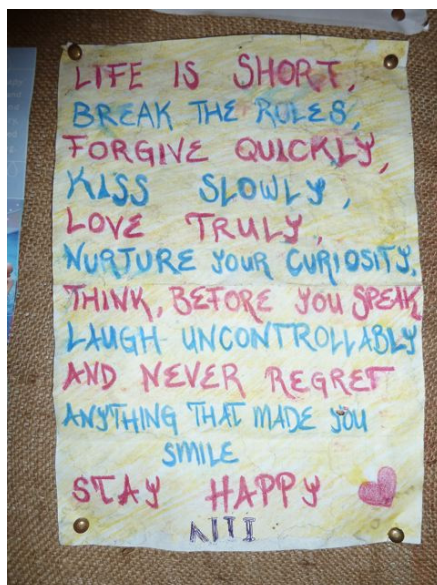 LIFE IS SHORT,
BREAK THE RULES,
FORGIVE QUICKLY,
KISS SLOWLY,
LOVE TRULY,
NURTURE YOUR CURIOSITY,
THINK, BEFORE YOU SPEAK
LAUGH UNCONTROLLABLY
AND NEVER REGRET
ANYTHING THAT MADE YOU
SMILE
STAY HAPPY